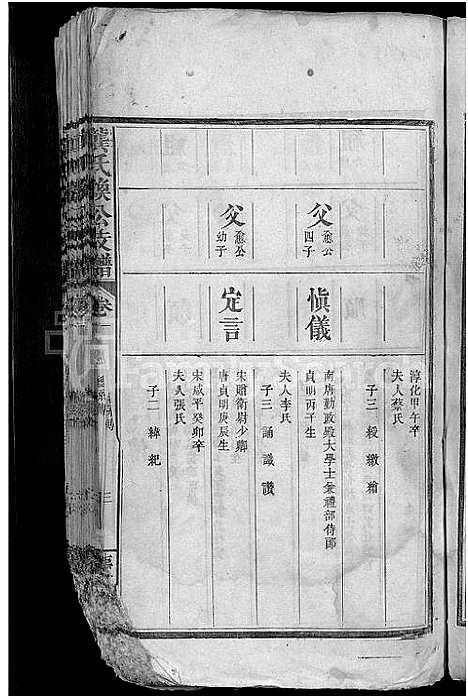 父 愈公四子
慎儀
父 愈公幼子
定言
淳化甲午卒
夫人蔡氏
子三 綬 繳 縚
南唐勤政殿大學士兼禮部侍郎
貞明丙子生
夫人李氏
子三 誦 識 讚
宋贈衛尉少卿
唐貞明庚辰生
宋咸平癸卯卒
夫人張氏
子二 綽 紀
龔氏煥公支譜
卷一
三